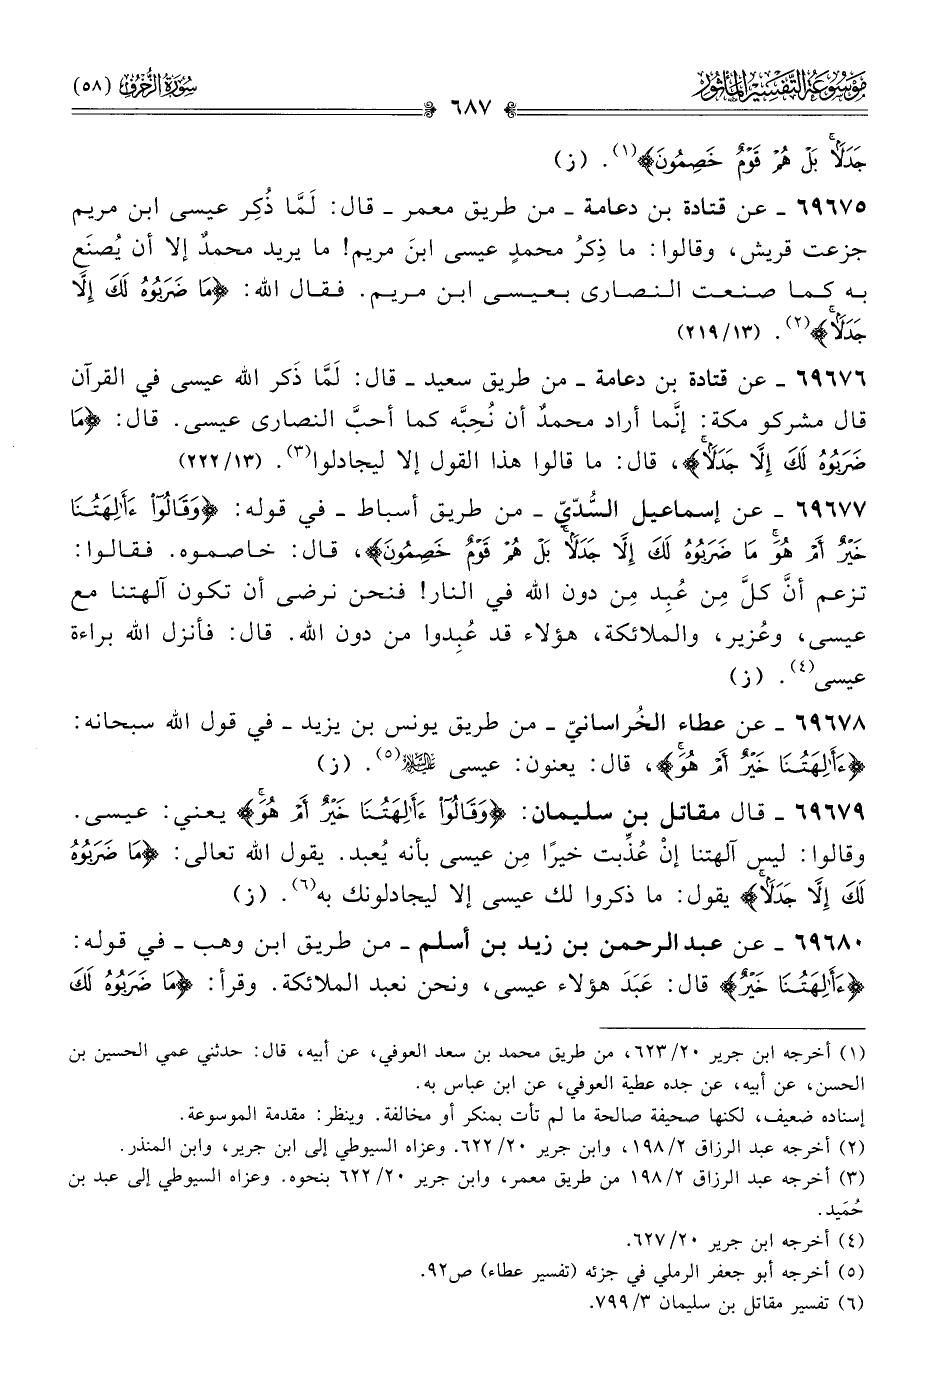 موسوعة التفسير المأثور
٦٨٧
سورة الزخرف (٥٨)
جَدَلًاۚ بَلْ هُمْ قَوْمٌ خَصِمُونَ﴾(١). (ز)
٦٩٦٧٥ ـ عن قتادة بن دعامة ـ من طريق معمر ـ قال: لَمَّا ذُكِر عيسى ابن مريم
جزعت قريش، وقالوا: ما ذِكرُ محمدٍ عيسى ابنَ مريم! ما يريد محمدٌ إلا أن يُصنَع
به كما صنعت النصارى بعيسى ابن مريم. فقال الله: ﴿مَا ضَرَبُوهُ لَكَ إِلَّا
جَدَلًاۚ﴾(٢). (٢١٩/١٣)
٦٩٦٧٦ ـ عن قتادة بن دعامة ـ من طريق سعيد ـ قال: لَمَّا ذَكر الله عيسى في القرآن
قال مشركو مكة: إنَّما أراد محمدٌ أن نُحِبَّه كما أحبَّ النصارى عيسى. قال: ﴿مَا
ضَرَبُوهُ لَكَ إِلَّا جَدَلًاۚ﴾، قال: ما قالوا هذا القول إلا ليجادلوا(٣). (٢٢٢/١٣)
٦٩٦٧٧ ـ عن إسماعيل السُّدّيّ ـ من طريق أسباط ـ في قوله: ﴿وَقَالُوٓا۟ ءَأَٰلِهَتُنَا
خَيْرٌ أَمْ هُوَۚ مَا ضَرَبُوهُ لَكَ إِلَّا جَدَلًاۚ بَلْ هُمْ قَوْمٌ خَصِمُونَ﴾، قال: خاصموه. فقالوا:
تزعم أنَّ كلَّ مِن عُبِد مِن دون الله في النار! فنحن نرضى أن تكون آلهتنا مع
عيسى، وعُزير، والملائكة، هؤلاء قد عُبِدوا من دون الله. قال: فأنزل الله براءة
عيسى(٤). (ز)
٦٩٦٧٨ ـ عن عطاء الخُراسانيّ ـ من طريق يونس بن يزيد ـ في قول الله سبحانه:
﴿ءَأَٰلِهَتُنَا خَيْرٌ أَمْ هُوَۚ﴾، قال: يعنون: عيسى عليه السلام(٥). (ز)
٦٩٦٧٩ ـ قال مقاتل بن سليمان: ﴿وَقَالُوٓا۟ ءَأَٰلِهَتُنَا خَيْرٌ أَمْ هُوَۚ﴾ يعني: عيسى.
وقالوا: ليس آلهتنا إنْ عُذِّبت خيرًا مِن عيسى بأنه يُعبد. يقول الله تعالى: ﴿مَا ضَرَبُوهُ
لَكَ إِلَّا جَدَلًاۚ﴾ يقول: ما ذكروا لك عيسى إلا ليجادلونك به(٦). (ز)
٦٩٦٨٠ ـ عن عبد الرحمن بن زيد بن أسلم ـ من طريق ابن وهب ـ في قوله:
﴿ءَأَٰلِهَتُنَا خَيْرٌ﴾ قال: عَبَدَ هؤلاء عيسى، ونحن نعبد الملائكة. وقرأ: ﴿مَا ضَرَبُوهُ لَكَ
(١) أخرجه ابن جرير ٦٢٣/٢٠، من طريق محمد بن سعد العوفي، عن أبيه، قال: حدثني عمي الحسين بن
الحسن، عن أبيه، عن جده عطية العوفي، عن ابن عباس به.
إسناده ضعيف، لكنها صحيفة صالحة ما لم تأت بمنكر أو مخالفة. وينظر: مقدمة الموسوعة.
(٢) أخرجه عبد الرزاق ١٩٨/٢، وابن جرير ٦٢٢/٢٠. وعزاه السيوطي إلى ابن جرير، وابن المنذر.
(٣) أخرجه عبد الرزاق ١٩٨/٢ من طريق معمر، وابن جرير ٦٢٢/٢٠ بنحوه. وعزاه السيوطي إلى عبد بن
حُمَيد.
(٤) أخرجه ابن جرير ٦٢٧/٢٠.
(٥) أخرجه أبو جعفر الرملي في جزئه (تفسير عطاء) ص٩٢.
(٦) تفسير مقاتل بن سليمان ٧٩٩/٣.